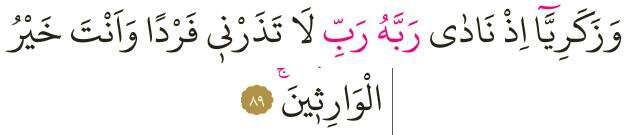 وَزَكَرِيَّٓا اِذْ نَادٰى رَبَّهُ رَبِّ لَا تَذَرْنٖى فَرْدًا وَاَنْتَ خَيْرُ
الْوَارِثٖينَۚ ﴿٨٩﴾